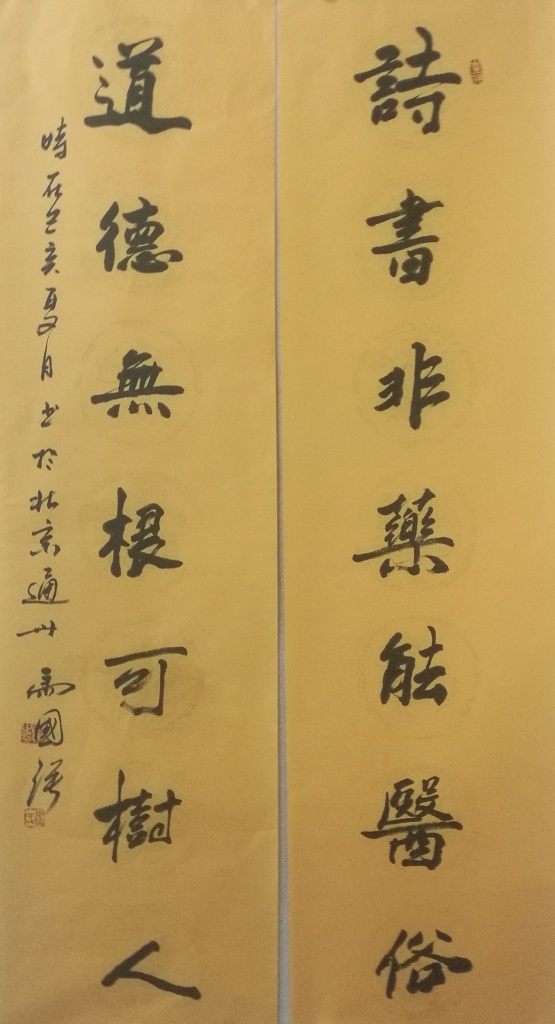 詩書非藥能醫俗
道德無根可樹人
時在己亥夏月书於北京通州馬國